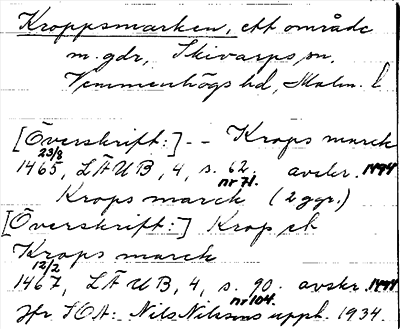 Kroppsmarken, ett område
m. gdr, Skivarps sn,
Vemmenhögs hd, Malm. l
[Överskrift:] -- Krops marck
23/8
1465, LÄUB, 4, s. 62. avskr. 1494
nr 71.
Krops marck (2 ggr.)
[Överskrift:] Krop ch
Krops marck
12/2
1467, LÄUB, 4, s. 90. avskr. 1494
nr 104.
Jfr SOA: Nils Nilssons uppt. 1934.